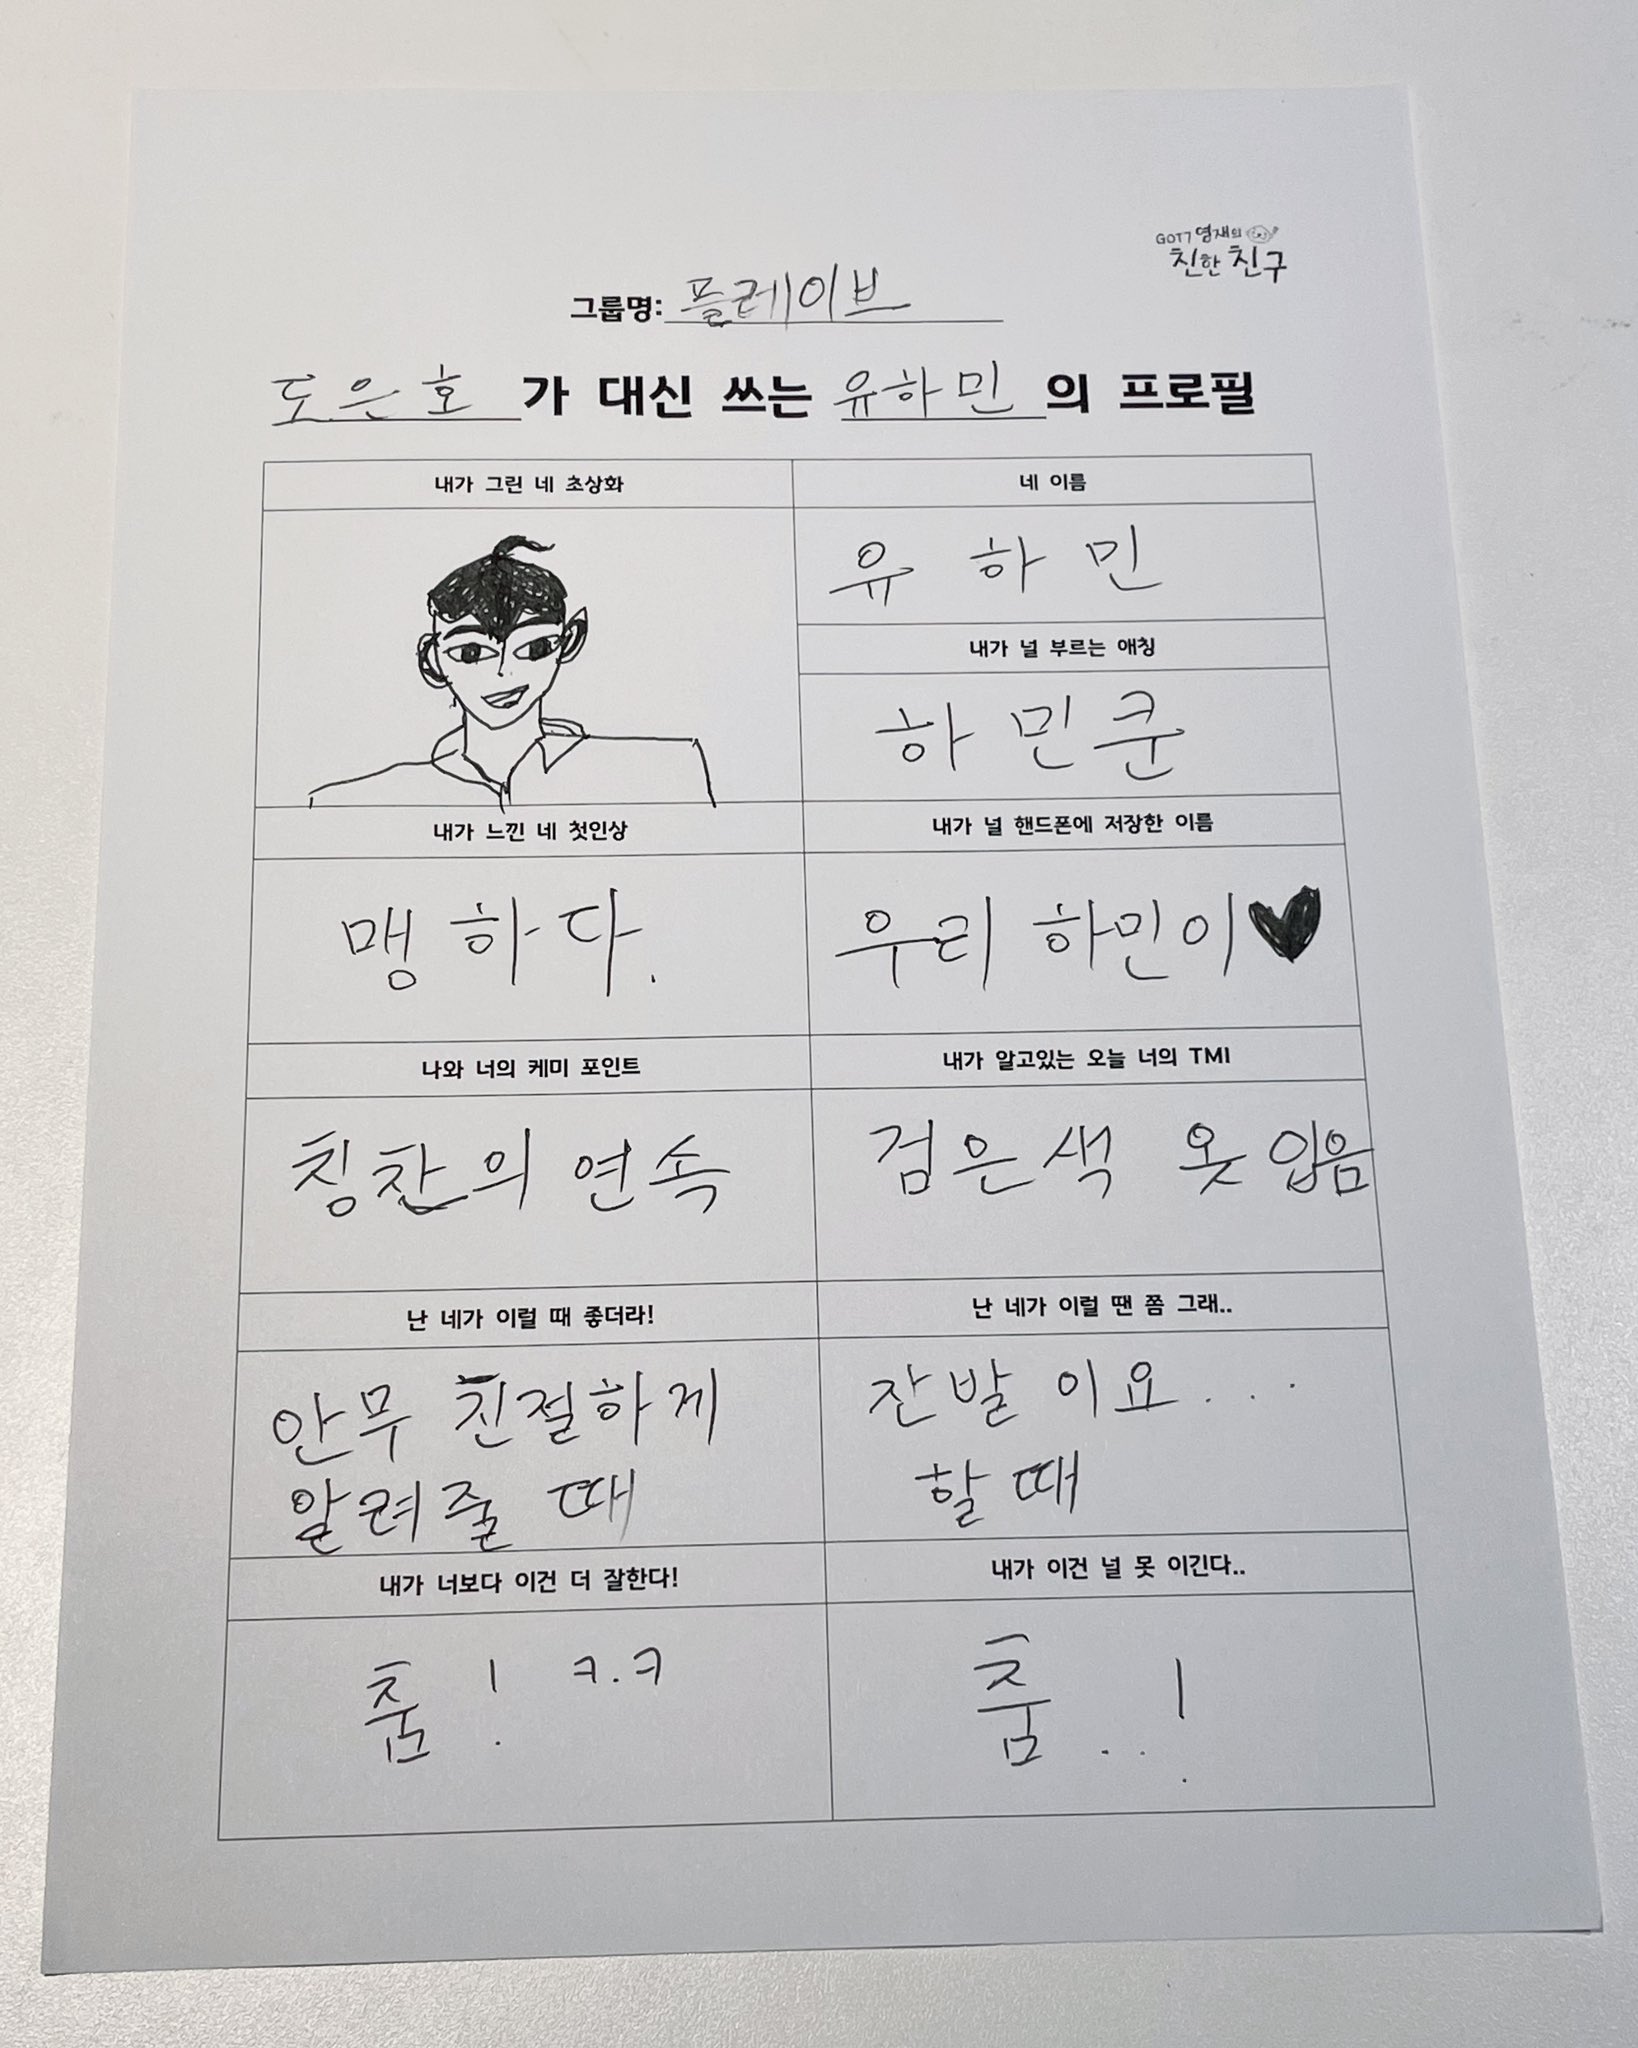 GOT7 영재의
친한 친구
그룹명: 플레이브
도은호가 대신 쓰는 유하민의 프로필
내가 그린 네 초상화
네 이름
유하민
내가 널 부르는 애칭
하민쿤
내가 느낀 네 첫인상
내가 널 핸드폰에 저장한 이름
맹하다.
우리 하민이♥
나와 너의 케미 포인트
내가 알고있는 오늘 너의 TMI
칭찬의 연속
검은색 옷 입음
난 네가 이럴 때 좋더라!
난 네가 이럴 땐 쫌 그래..
안무 친절하게
알려줄 때
잔발 이요...
할 때
내가 너보다 이건 더 잘한다!
내가 이건 널 못 이긴다..
춤! ㅋ.ㅋ
춤..!